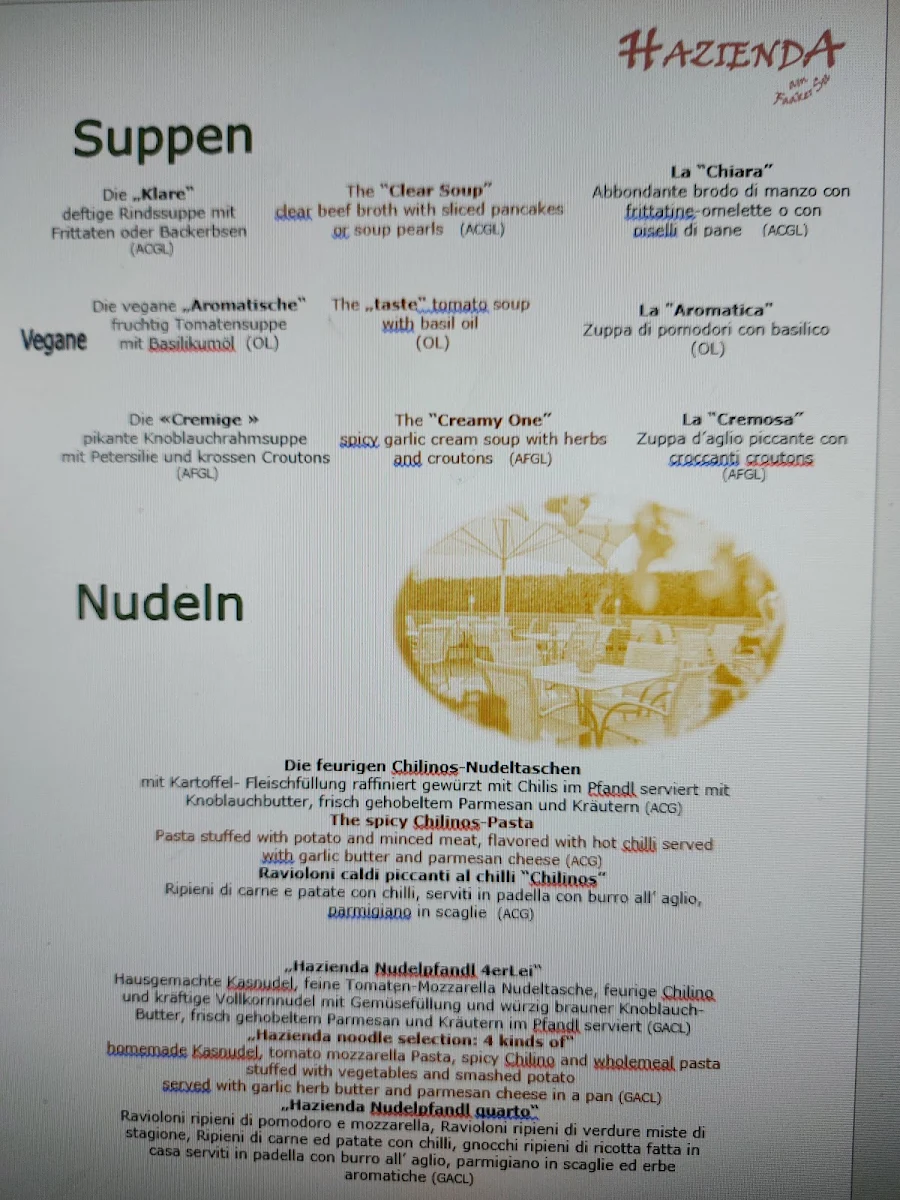 HAZIENDA
am
Faaker See
Suppen
Die „Klare"
deftige Rindssuppe mit
Frittaten oder Backerbsen
(ACGL)
The "Clear Soup"
clear beef broth with sliced pancakes
or soup pearls (ACGL)
La "Chiara"
Abbondante brodo di manzo con
frittatine-omelette o con
piselli di pane (ACGL)
Vegane
Die vegane „Aromatische"
fruchtig Tomatensuppe
mit Basilikumöl (OL)
The „taste" tomato soup
with basil oil
(OL)
La "Aromatica"
Zuppa di pomodori con basilico
(OL)
Die «Cremige »
pikante Knoblauchrahmsuppe
mit Petersilie und krossen Croutons
(AFGL)
The "Creamy One"
spicy garlic cream soup with herbs
and croutons (AFGL)
La "Cremosa"
Zuppa d'aglio piccante con
croccanti croutons
(AFGL)
Nudeln
Die feurigen Chilinos-Nudeltaschen
mit Kartoffel- Fleischfüllung raffiniert gewürzt mit Chilis im Pfandl serviert mit
Knoblauchbutter, frisch gehobeltem Parmesan und Kräutern (ACG)
The spicy Chilinos-Pasta
Pasta stuffed with potato and minced meat, flavored with hot chilli served
with garlic butter and parmesan cheese (ACG)
Ravioloni caldi piccanti al chilli "Chilinos"
Ripieni di carne e patate con chilli, serviti in padella con burro all' aglio,
parmigiano in scaglie (ACG)
„Hazienda Nudelpfandl 4erLei"
Hausgemachte Kasnudel, feine Tomaten-Mozzarella Nudeltasche, feurige Chilino
und kräftige Vollkornnudel mit Gemüsefüllung und würzig brauner Knoblauch-
Butter, frisch gehobeltem Parmesan und Kräutern im Pfandl serviert (GACL)
„Hazienda noodle selection: 4 kinds of"
homemade Kasnudel, tomato mozzarella Pasta, spicy Chilino and wholemeal pasta
stuffed with vegetables and smashed potato
served with garlic herb butter and parmesan cheese in a pan (GACL)
„Hazienda Nudelpfandl quarto"
Ravioloni ripieni di pomodoro e mozzarella, Ravioloni ripieni di verdure miste di
stagione, Ripieni di carne ed patate con chilli, gnocchi ripieni di ricotta fatta in
casa serviti in padella con burro all' aglio, parmigiano in scaglie ed erbe
aromatiche (GACL)